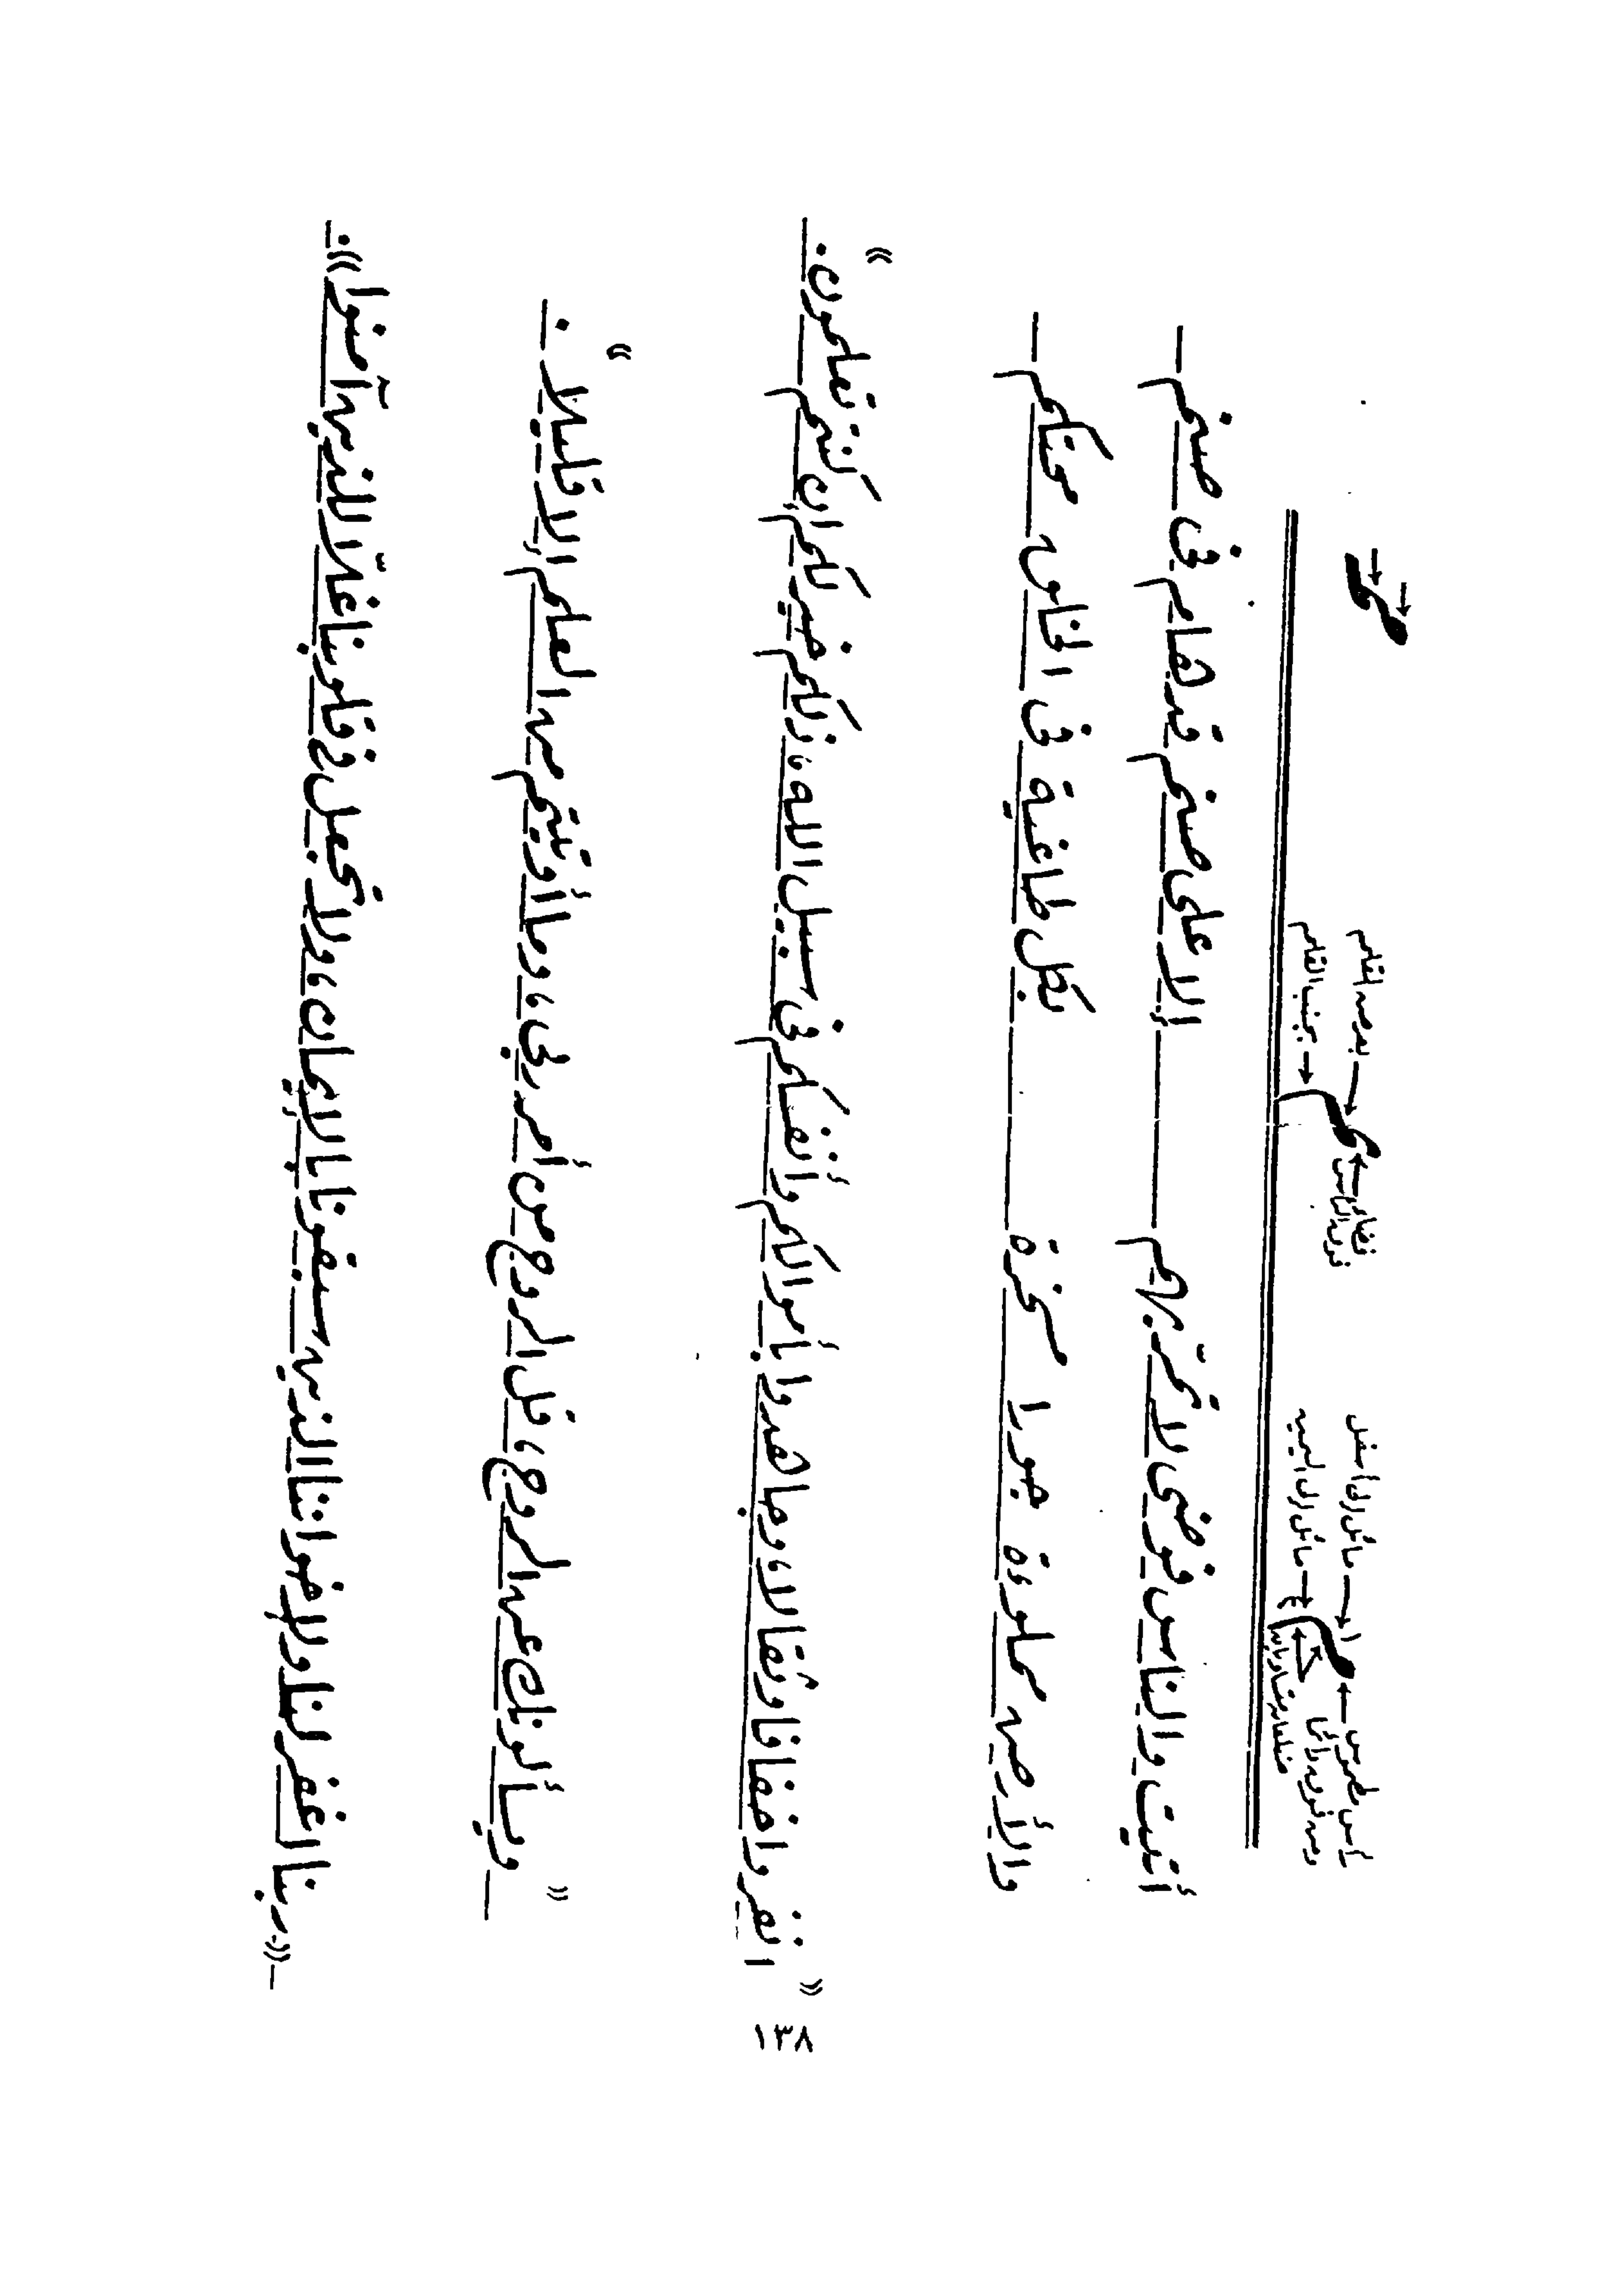 رأس مطموس
مائل إلى أسفل
ومن فوق دائما
مائل إلى اليمين
فضاء
فوق الرأس
بعرض القلم
بجنب القلم
أتيت والناس فوضى لا تمرّ بهم — إلا على صنم قد هام في صنم
والأرض مملوءة جورا مسخرة — بكل طاغية في الخلق محتكم
« انفروا خفافا وثقالا، وجاهدوا بأموالكم وأنفسكم في سبيل الله، ذلكم خير لكم إن كنتم تعلمون. »
« ويسألونك عن الروح، قل الروح من أمر ربي، وما أوتيتم من العلم إلا قليلا. »
«ربنا اغفر لنا ولإخواننا الذين سبقونا بالإيمان، ولا تجعل في قلوبنا غلّا للذين آمنوا».
١٣٨